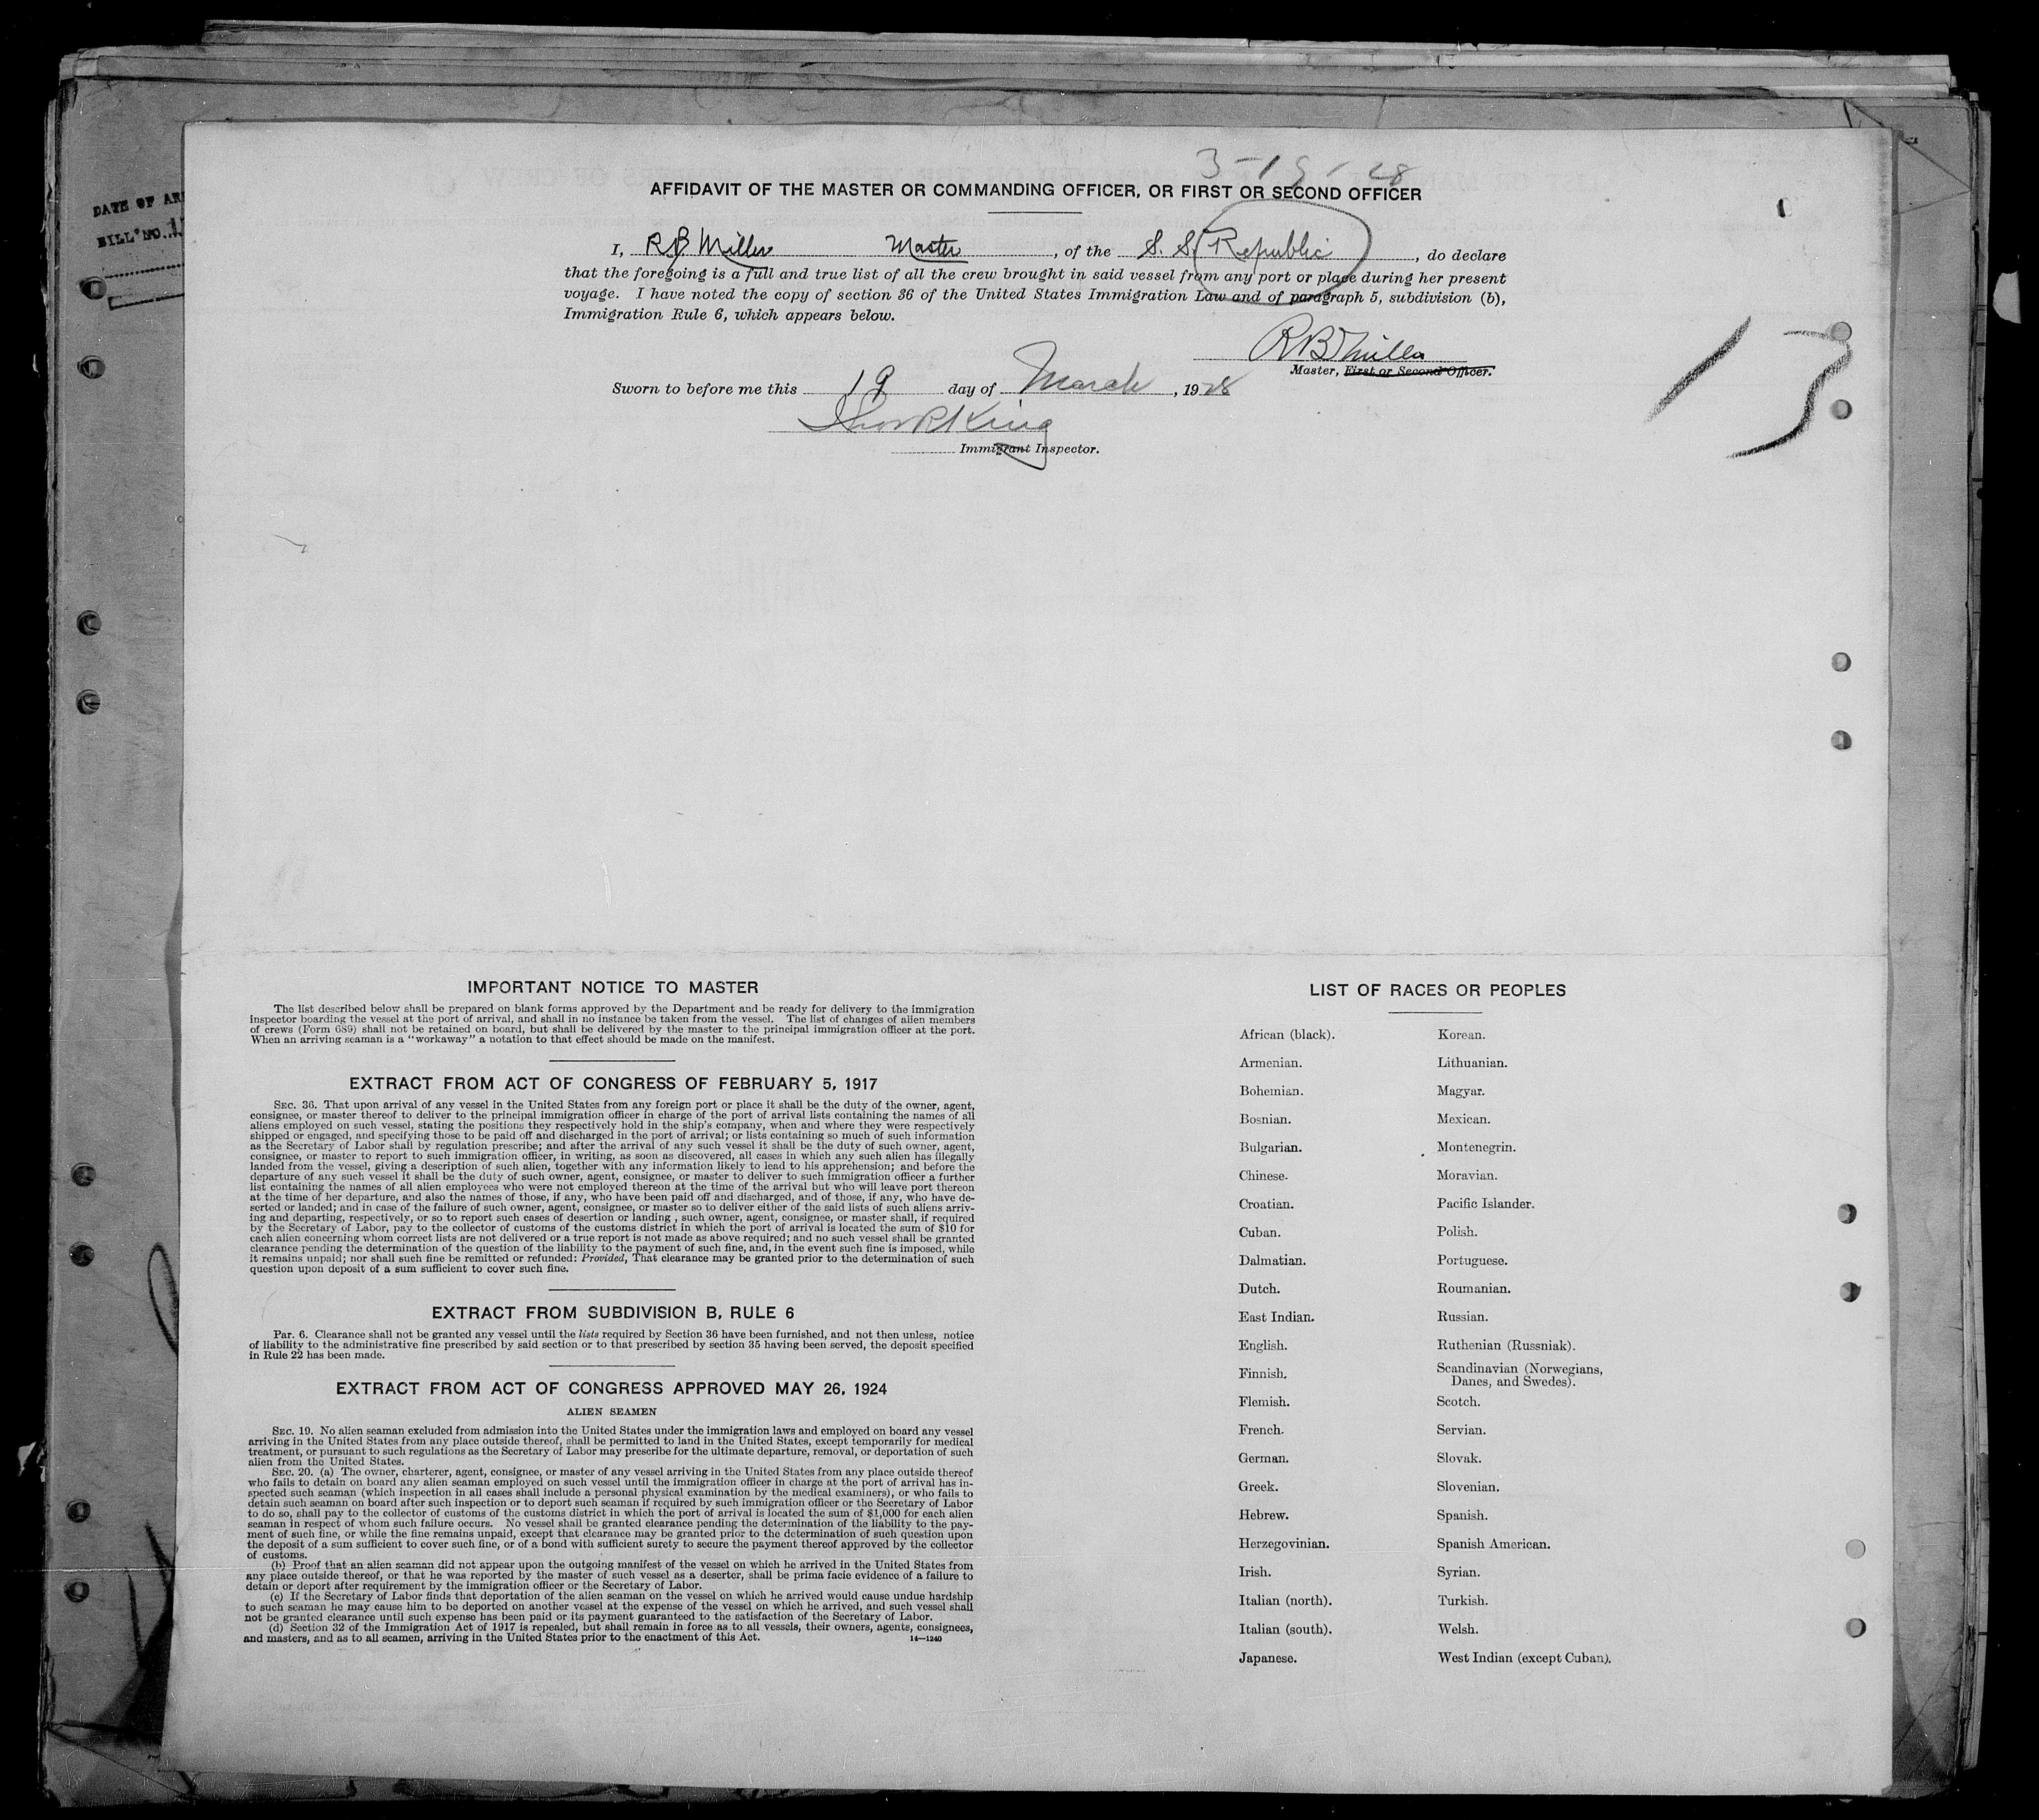 3-19-28
AFFIDAVIT OF THE MASTER OR COMMANDING OFFICER, OR FIRST OR SECOND OFFICER
I, R B Miller Master, of the S. S. Republic, do declare
that the foregoing is a full and true list of all the crew brought in said vessel from any port or place during her present
voyage. I have noted the copy of section 36 of the United States Immigration Law and of paragraph 5, subdivision (b),
Immigration Rule 6, which appears below.
R B Miller
Master, First or Second Officer.
13
Sworn to before me this 19 day of March, 1928
King
Immigrant Inspector.
DATE OF
BILL NO.
IMPORTANT NOTICE TO MASTER
The list described below shall be prepared on blank forms approved by the Department and be ready for delivery to the immigration
inspector boarding the vessel at the port of arrival, and shall in no instance be taken from the vessel. The list of changes of alien members
of crews (Form 689) shall not be retained on board, but shall be delivered by the master to the principal immigration officer at the port.
When an arriving seaman is a "workaway" a notation to that effect should be made on the manifest.
EXTRACT FROM ACT OF CONGRESS OF FEBRUARY 5, 1917
SEC. 36. That upon arrival of any vessel in the United States from any foreign port or place it shall be the duty of the owner, agent,
consignee, or master thereof to deliver to the principal immigration officer in charge of the port of arrival lists containing the names of all
aliens employed on such vessel, stating the positions they respectively hold in the ship's company, when and where they were respectively
shipped or engaged, and specifying those to be paid off and discharged in the port of arrival; or lists containing so much of such information
as the Secretary of Labor shall by regulation prescribe; and after the arrival of any such vessel it shall be the duty of such owner, agent,
consignee, or master to report to such immigration officer, in writing, as soon as discovered, all cases in which any such alien has illegally
landed from the vessel, giving a description of such alien, together with any information likely to lead to his apprehension; and before the
departure of any such vessel it shall be the duty of such owner, agent, consignee, or master to deliver to such immigration officer a further
list containing the names of all alien employees who were not employed thereon at the time of the arrival but who will leave port thereon
at the time of her departure, and also the names of those, if any, who have been paid off and discharged, and of those, if any, who have de-
serted or landed; and in case of the failure of such owner, agent, consignee, or master so to deliver either of the said lists of such aliens arriv-
ing and departing, respectively, or so to report such cases of desertion or landing , such owner, agent, consignee, or master shall, if required
by the Secretary of Labor, pay to the collector of customs of the customs district in which the port of arrival is located the sum of $10 for
each alien concerning whom correct lists are not delivered or a true report is not made as above required; and no such vessel shall be granted
clearance pending the determination of the question of the liability to the payment of such fine, and, in the event such fine is imposed, while
it remains unpaid; nor shall such fine be remitted or refunded: Provided, That clearance may be granted prior to the determination of such
question upon deposit of a sum sufficient to cover such fine.
EXTRACT FROM SUBDIVISION B, RULE 6
Par. 6. Clearance shall not be granted any vessel until the lists required by Section 36 have been furnished, and not then unless, notice
of liability to the administrative fine prescribed by said section or to that prescribed by section 35 having been served, the deposit specified
in Rule 22 has been made.
EXTRACT FROM ACT OF CONGRESS APPROVED MAY 26, 1924
ALIEN SEAMEN
SEC. 19. No alien seaman excluded from admission into the United States under the immigration laws and employed on board any vessel
arriving in the United States from any place outside thereof, shall be permitted to land in the United States, except temporarily for medical
treatment, or pursuant to such regulations as the Secretary of Labor may prescribe for the ultimate departure, removal, or deportation of such
alien from the United States.
SEC. 20. (a) The owner, charterer, agent, consignee, or master of any vessel arriving in the United States from any place outside thereof
who fails to detain on board any alien seaman employed on such vessel until the immigration officer in charge at the port of arrival has in-
spected such seaman (which inspection in all cases shall include a personal physical examination by the medical examiners), or who fails to
detain such seaman on board after such inspection or to deport such seaman if required by such immigration officer or the Secretary of Labor
to do so, shall pay to the collector of customs of the customs district in which the port of arrival is located the sum of $1,000 for each alien
seaman in respect of whom such failure occurs. No vessel shall be granted clearance pending the determination of the liability to the pay-
ment of such fine, or while the fine remains unpaid, except that clearance may be granted prior to the determination of such question upon
the deposit of a sum sufficient to cover such fine, or of a bond with sufficient surety to secure the payment thereof approved by the collector
of customs.
(b) Proof that an alien seaman did not appear upon the outgoing manifest of the vessel on which he arrived in the United States from
any place outside thereof, or that he was reported by the master of such vessel as a deserter, shall be prima facie evidence of a failure to
detain or deport after requirement by the immigration officer or the Secretary of Labor.
(c) If the Secretary of Labor finds that deportation of the alien seaman on the vessel on which he arrived would cause undue hardship
to such seaman he may cause him to be deported on another vessel at the expense of the vessel on which he arrived, and such vessel shall
not be granted clearance until such expense has been paid or its payment guaranteed to the satisfaction of the Secretary of Labor.
(d) Section 32 of the Immigration Act of 1917 is repealed, but shall remain in force as to all vessels, their owners, agents, consignees,
and masters, and as to all seamen, arriving in the United States prior to the enactment of this Act.
14—1240
LIST OF RACES OR PEOPLES
African (black).
Armenian.
Bohemian.
Bosnian.
Bulgarian.
Chinese.
Croatian.
Cuban.
Dalmatian.
Dutch.
East Indian.
English.
Finnish.
Flemish.
French.
German.
Greek.
Hebrew.
Herzegovinian.
Irish.
Italian (north).
Italian (south).
Japanese.
Korean.
Lithuanian.
Magyar.
Mexican.
Montenegrin.
Moravian.
Pacific Islander.
Polish.
Portuguese.
Roumanian.
Russian.
Ruthenian (Russniak).
Scandinavian (Norwegians,
Danes, and Swedes).
Scotch.
Servian.
Slovak.
Slovenian.
Spanish.
Spanish American.
Syrian.
Turkish.
Welsh.
West Indian (except Cuban).